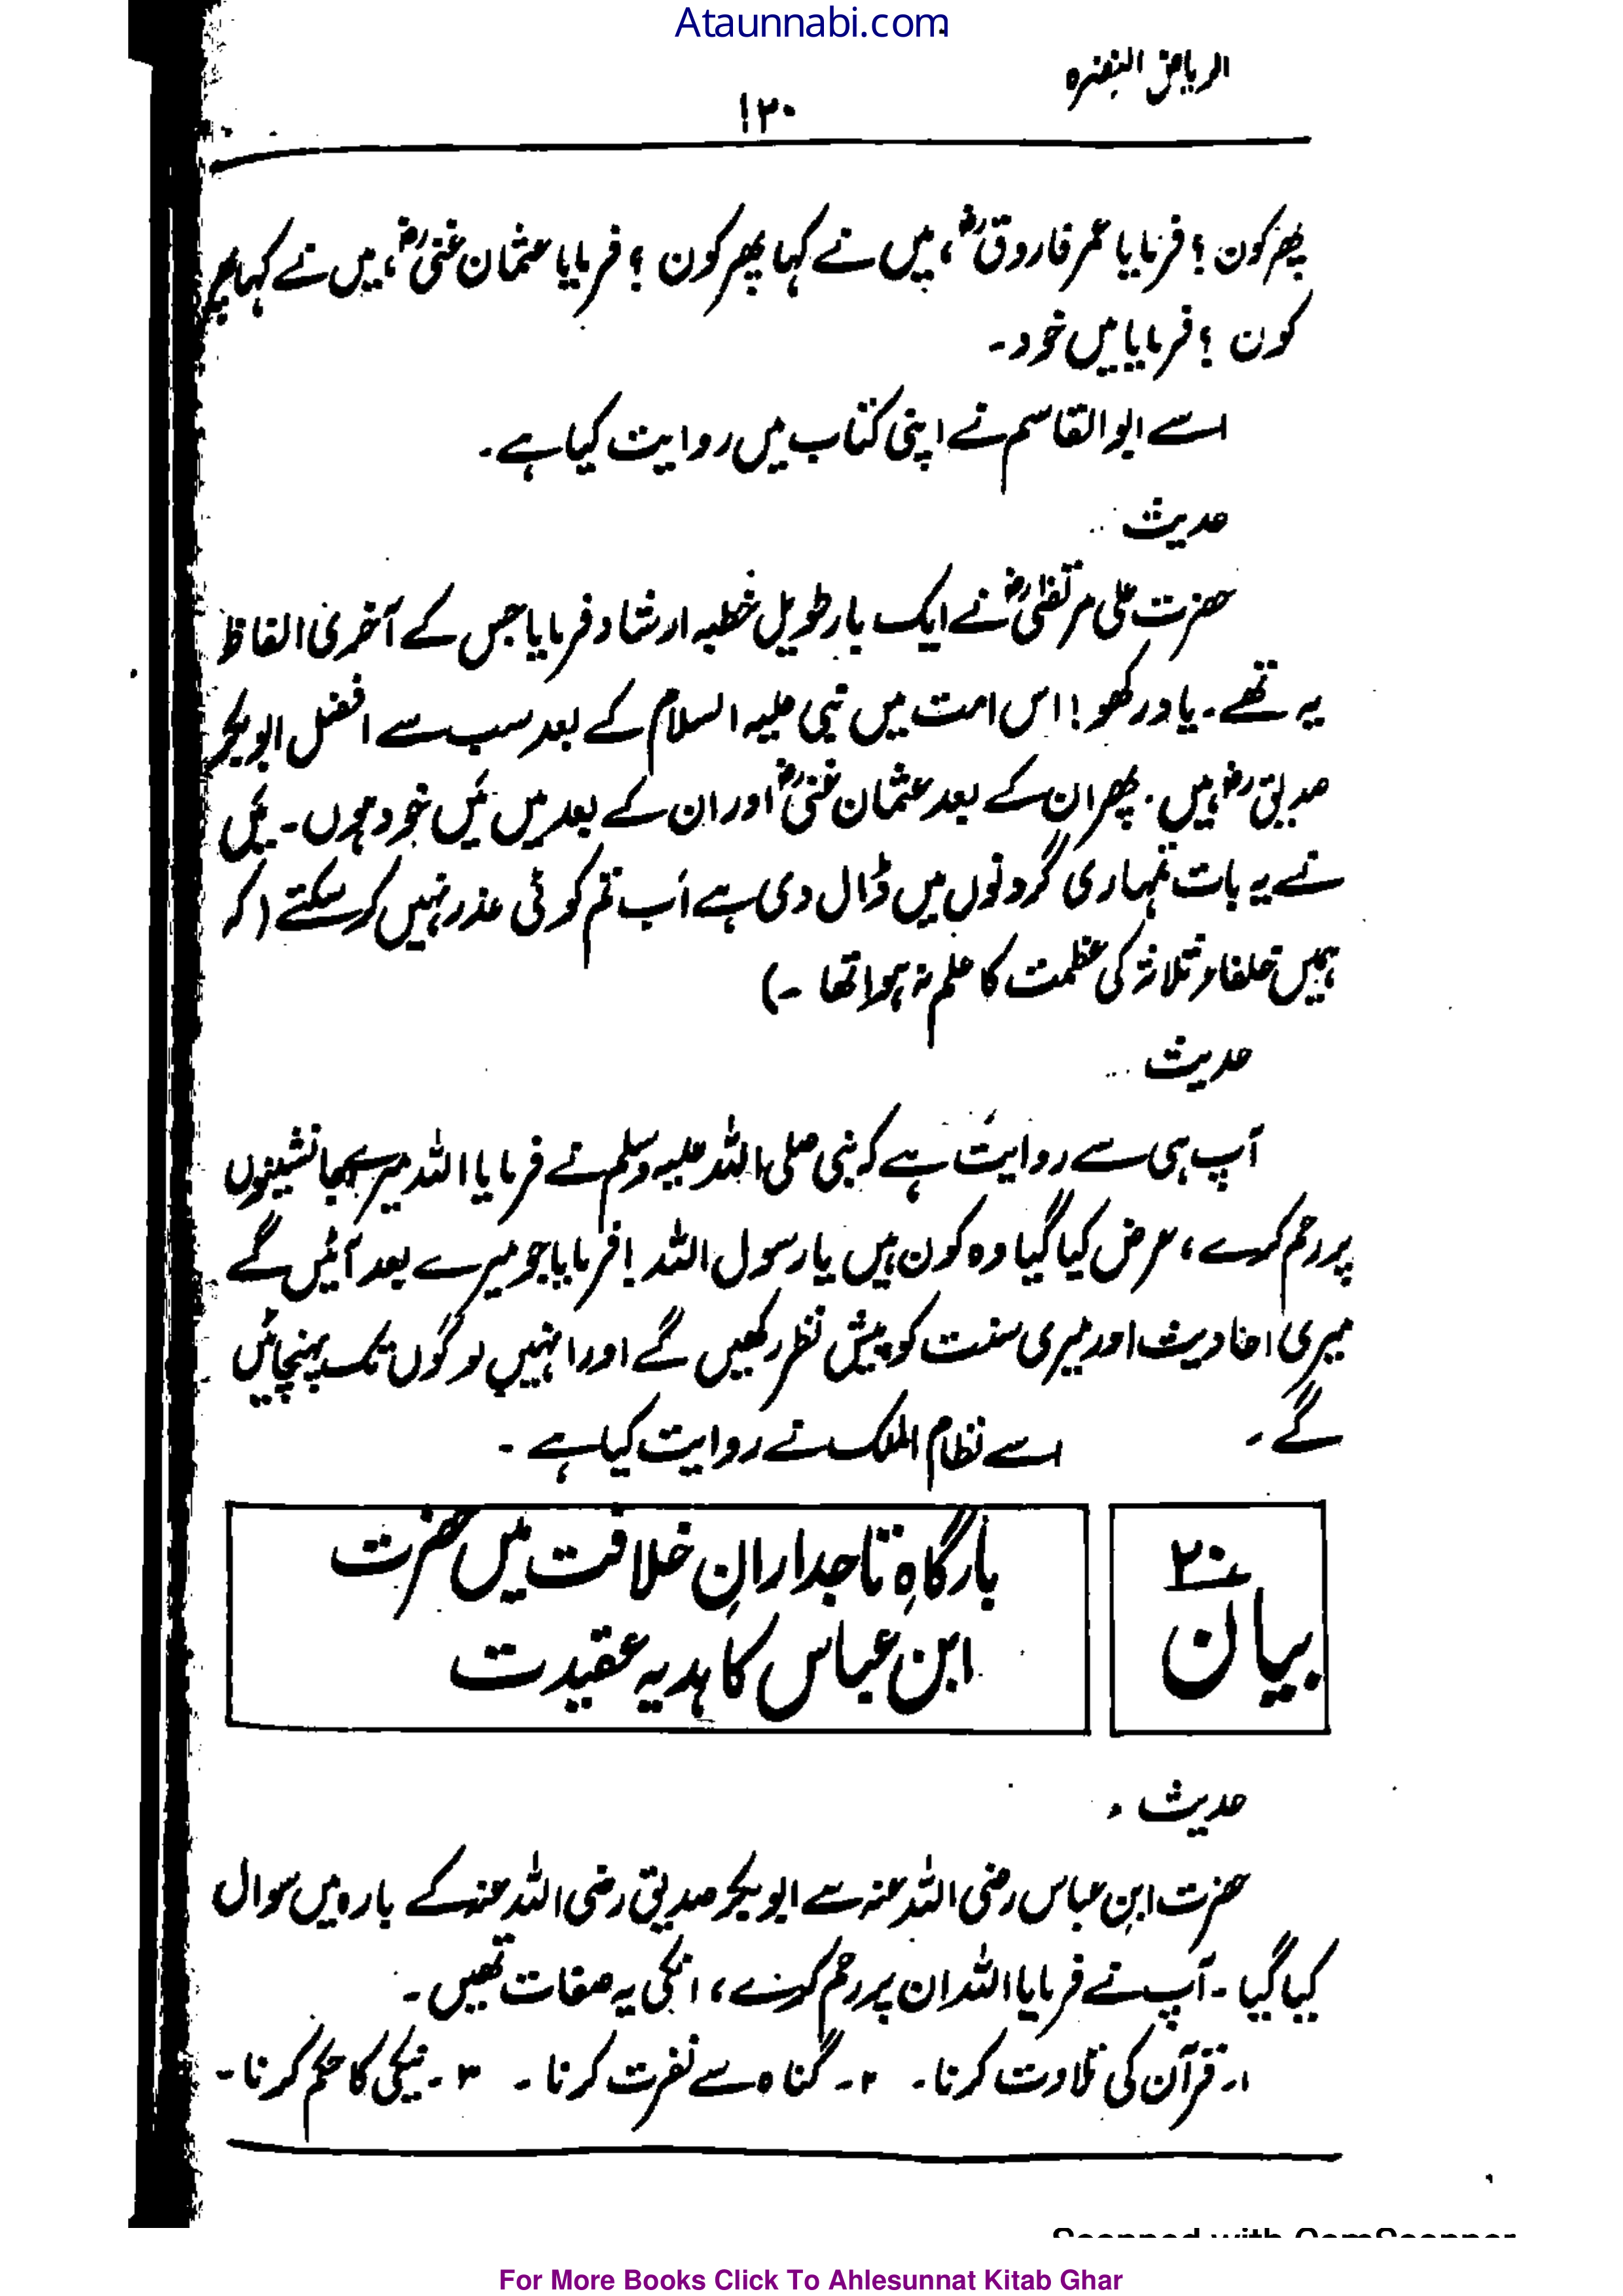 Ataunnabi.com
الریاض النضرہ
۱۲۰
پھر کون ؟ فرمایا عمر فاروقؓ ، میں نے کہا پھر کون ؟ فرمایا عثمان غنیؓ ، میں نے کہا پھر
کون ؟ فرمایا میں خود ۔
اسے ابوالقاسم نے اپنی کتاب میں روایت کیا ہے ۔
حدیث
حضرت علی مرتضٰیؓ نے ایک بار طویل خطبہ ارشاد فرمایا جس کے آخری الفاظ
یہ تھے ۔ یاد رکھو ! اس امت میں نبی علیہ السلام کے بعد سب سے افضل ابوبکر
صدیقؓ ہیں ۔ پھر ان کے بعد عثمان غنیؓ اور ان کے بعد میں مَیں خود ہوں ۔ مَیں
نے یہ بات تمہاری گردنوں میں ڈال دی ہے اب تم کوئی عذر نہیں کر سکتے ( کہ
ہمیں خلفاء ثلاثہ کی عظمت کا علم نہ ہوا تھا ۔)
حدیث
آپ ہی سے روایت ہے کہ نبی صلی اللہ علیہ وسلم نے فرمایا اللہ میرے جانشینوں
پر رحم کرے ، عرض کیا گیا وہ کون ہیں یا رسول اللہ ! فرمایا جو میرے بعد آئیں گے
میری احادیث اور میری سنت کو پیش نظر رکھیں گے اور انہیں لوگوں تک پہنچائیں
گے ۔ اسے نظام الملک نے روایت کیا ہے ۔
بیان ۲۰
بارگاہِ تاجدارانِ خلافت میں حضرت
ابن عباس کا ہدیہ عقیدت
حدیث
حضرت ابن عباس رضی اللہ عنہ سے ابوبکر صدیق رضی اللہ عنہ کے بارہ میں سوال
کیا گیا ۔ آپ نے فرمایا اللہ ان پر رحم کرے ، انکی یہ صفات تھیں ۔
۱۔ قرآن کی تلاوت کرنا ۔ ۲ ۔ گناہ سے نفرت کرنا ۔ ۳ ۔ نیکی کا حکم کرنا ۔
Scanned with CamScanner
For More Books Click To Ahlesunnat Kitab Ghar